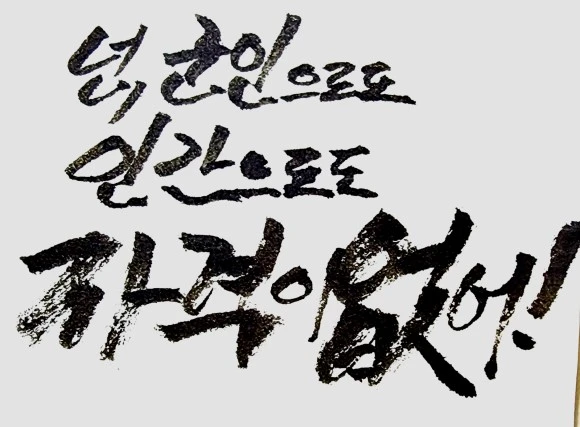 넌, 군인으로도
인간으로도
자격이 없어!